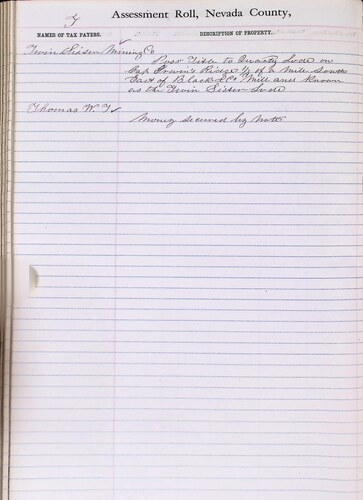 T
Assessment Roll, Nevada County,
NAMES OF TAX PAYERS.
DESCRIPTION OF PROPERTY.
Twin Sister Mining Co
Poss Title to Quartz Lode on
Ridge ¼ of a Mile South
East of Black & Mill and Known
as the Twin Sister Lode
Thomas W. T
Money secured by note